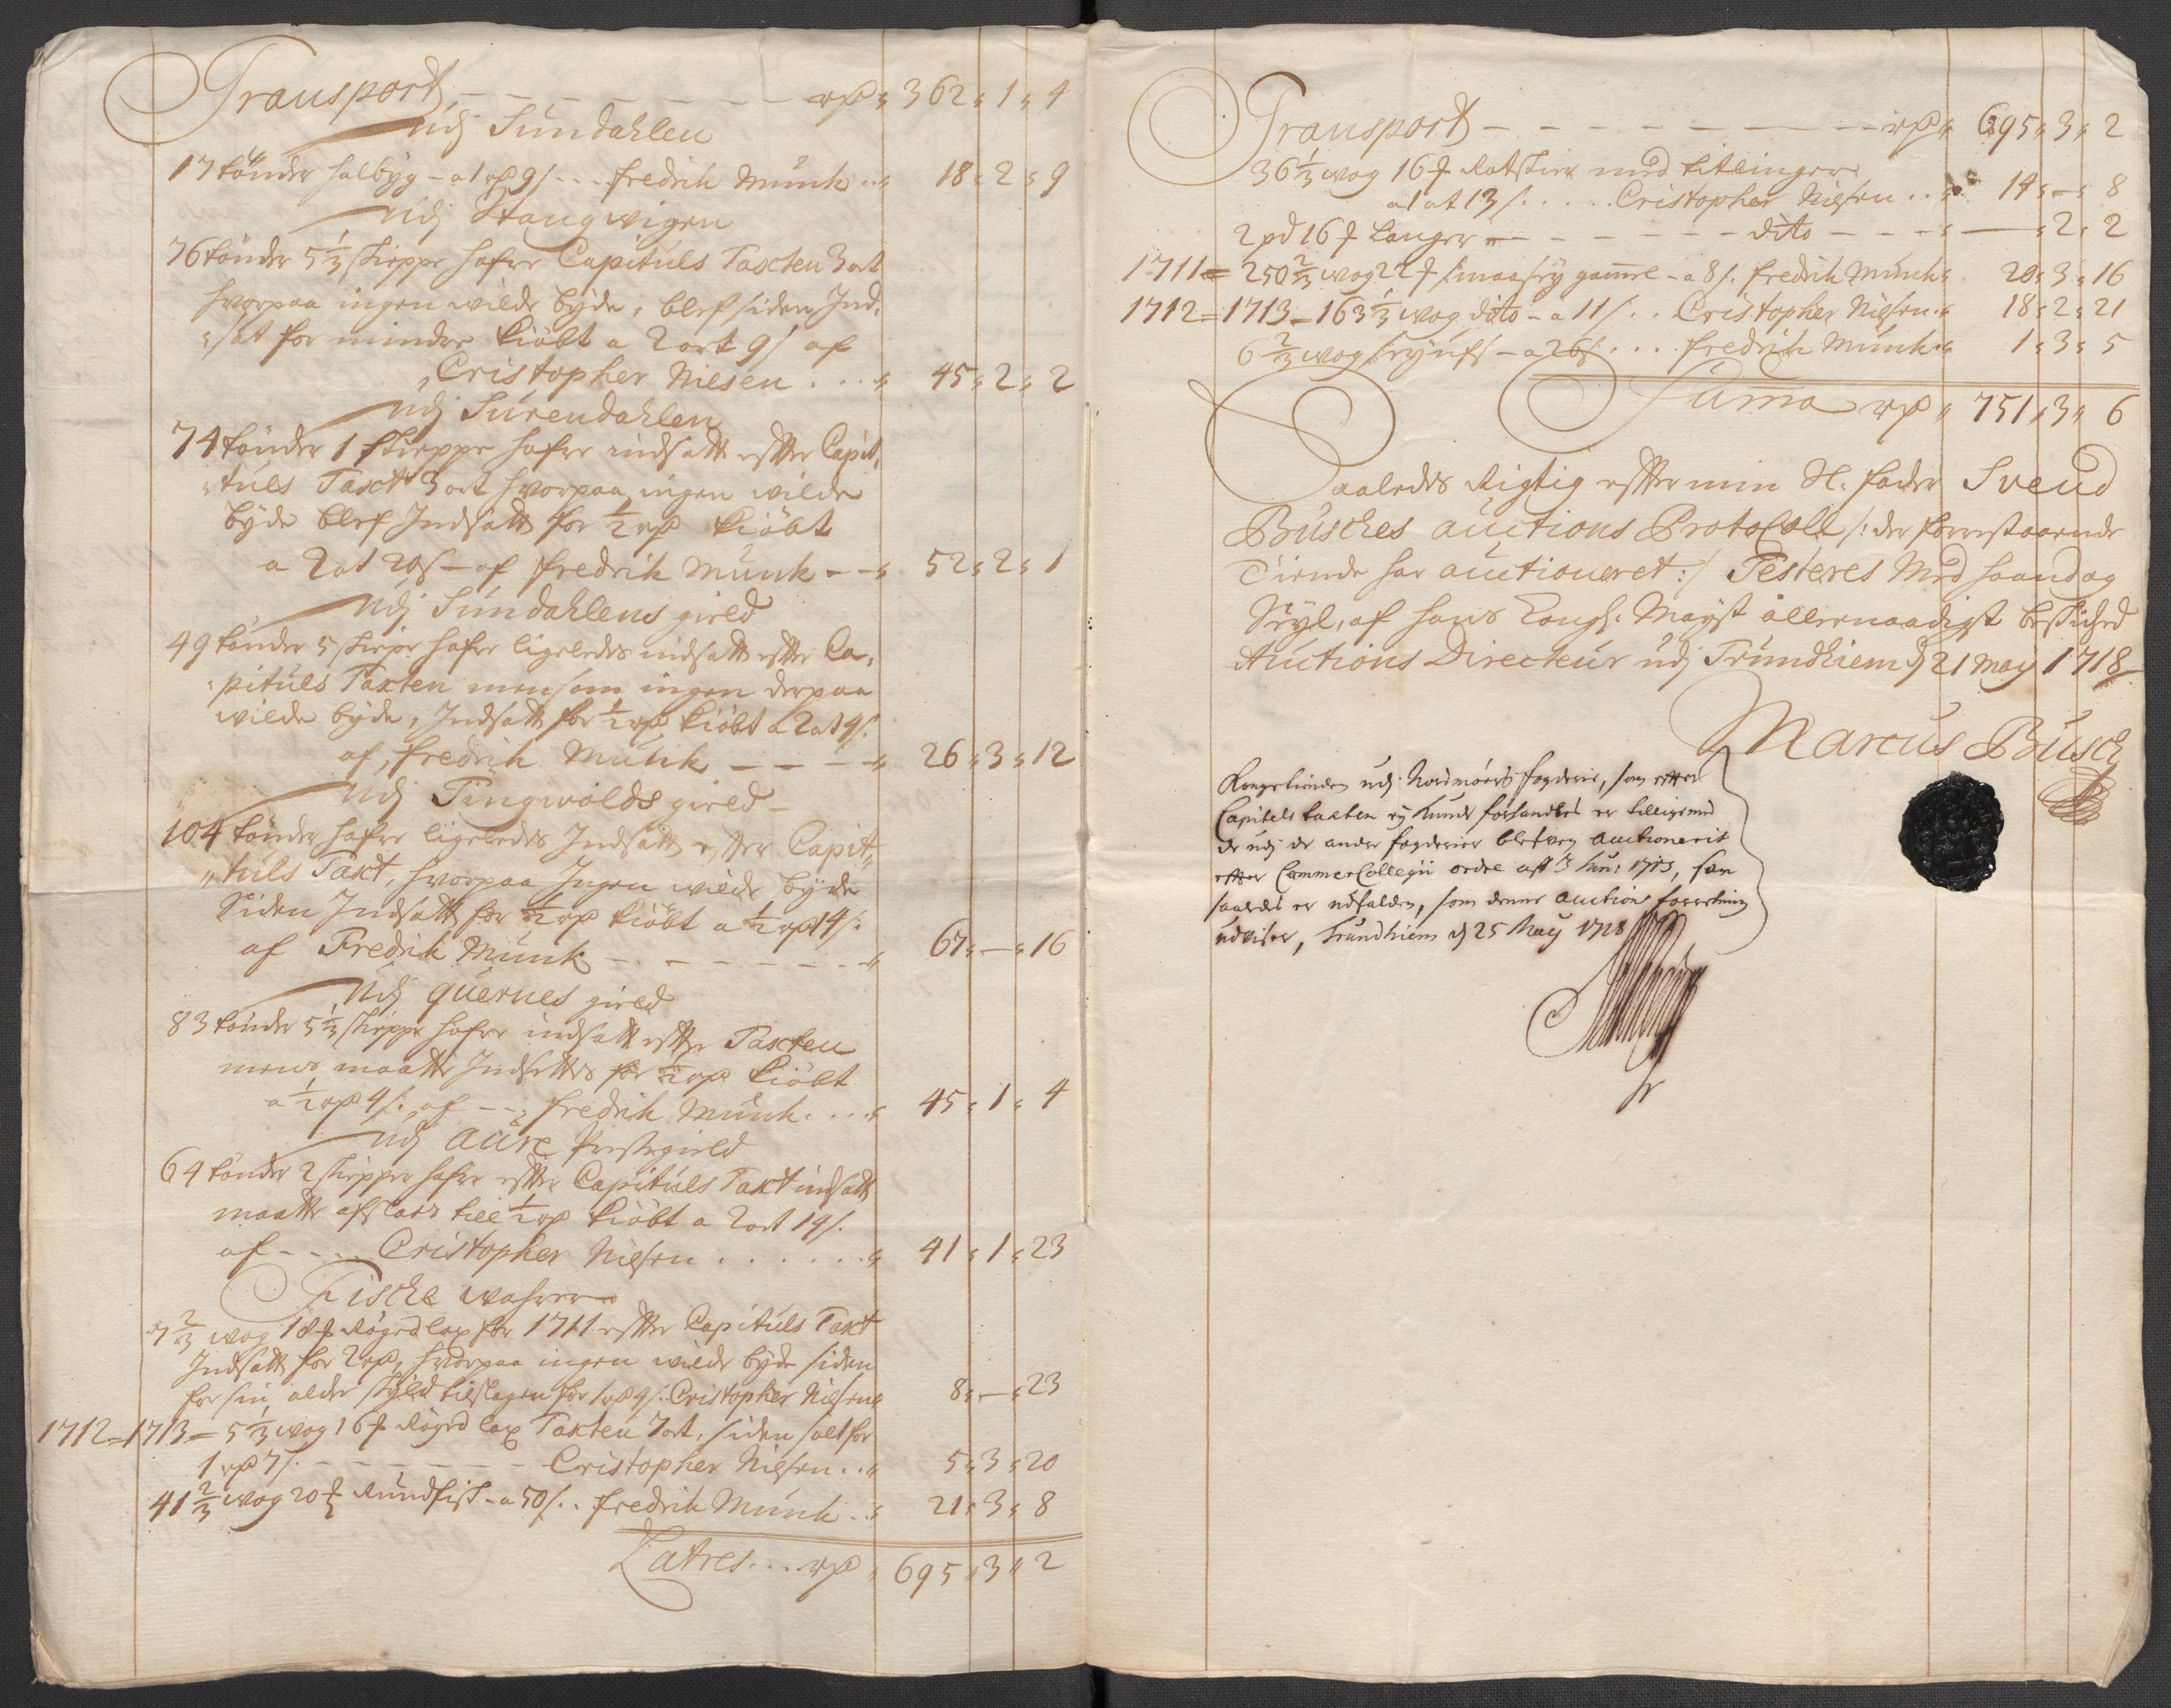 Transport - - - - - - - rdr 362 " 1 " 4
udj Sundahlen
17 tønder halbyg - a 1 rdr 9 s - - - fredrik Munk .. " 18 " 2 " 9
udj Stangwigen
76 tønder 5 1/3 skieppe hafre Capituls Taxten 3 ort
hvorpaa ingen wilde byde, blef siden Ind-
sat for mindre kiøbt a 2 ort 9 s af
Cristopher Nielsen . . . " 45 " 2 " 2
udj Surendahlen
74 tønder 1 skieppe hafre indsatt efter Capit-
tuls Taxt 3 ort hvorpaa ingen wilde
byde blef Indsatt for 1/2 rdr kiøbt
a 2 ort 20 s - af fredrik Munk - - " 52 " 2 " 1
udj Sundahlens gield
49 tønder 5 skiepe hafre ligeledes indsatt efter Ca-
pituls Taxten men som ingen derpaa
wilde byde, Indsatt for 1/2 rdr kiøbt a 2 ort 9 s.
af, fredrik Munk - - - - " 26 " 3 " 12
udj Tingwolds gield -
104 tønder hafre ligeledes Indsatt efter Capit-
tuls Taxt, hvorpaa Ingen wilde byde
Siden Indsatt for 1/2 rdr kiøbt a 1/2 rdr 14 s.
af Fredrik Munk - - - - - - - " 67 " - " 16
udj quernes gield
83 tønder 5 1/3 skieppe hafre indsatt efter Taxten
mens maatte Indsettes for 1/2 rdr kiøbt
a 1/2 rdr 4 s. af - - , fredrik Munk . . . " 45 " 1 " 4
udj Aure Prestegield
64 tønder 2 skiepper hafre efter Capituls Taxt indsatt
maatte afslaes till 1/2 rdr kiøbt a 2 ort 14 s.
af - - - - Cristopher Nielsen . . . . . . " 41 " 1 " 23
Fische wahrer
7 2/3 wog 18 ℔ Røged lax for 1711 efter Capituls Taxt
Indsatt for 2 rdr, hvorpaa ingen wilde byde siden
for sin alder skyld tilslagen for 1 rdr 9 s. Cristopher Nielsen " 8 " - " 23
1712 = 1713 = 5 1/3 wog 16 ℔ Røged lax Taxten 7 ort, siden solt for
1 rdr 7 s. - - - - - - - Cristopher Nielsen . . " 5 " 3 " 20
41 2/3 wog 20 ℔ Rundfisk - a 50 s. . fredrik Munk . . " 21 " 3 " 8
Latres . . . rdr " 695 " 3 " 2
Transport - - - - - - - - - rdr " 695 " 3 " 2
36 1/3 wog 16 ℔ Rotskier med titlinger
a 1 ort 13 s. . . . . Cristopher Nielsen . . " 14 " - " 8
2 pd 16 ℔ Langer - - - - - - - dito - - - - " - " 2 " 2
1711 = 250 2/3 wog 22 ℔ smaasey gamle - a 8 s. fredrik Munk " 20 " 3 " 16
1712 = 1713 - 163 1/3 wog dito - a 11 s . . Cristopher Nielsen " 18 " 2 " 21
6 2/3 wog - a 26 s. . . . fredrik Munk " 1 " 3 " 5
Suma rdr " 751 " 3 " 6
Saaledes Rigtig efter min Sl. fader Svend
Busches auctions Protocoll /: der forrestaaende
Tiende har auctioneret :/ Testeres Med haand og
Seyl, af hans Kongl. Mayst allernaadigst beskiked
Auctions Directeur udj Trundhiem d 21 May 1718
Marcus Busch
Kongetienden udj Nordmørs fogderie, som efter
Capitels taxten ej kunde forhandles er tilligemed
de udj de andre fogderier blefven auctionerit
efter CammerCollegii ordre aff 3 Juni 1713, som
saaledes er udfalden, som denne auction forretning
udviser, Trundhiem d 25 May 1718